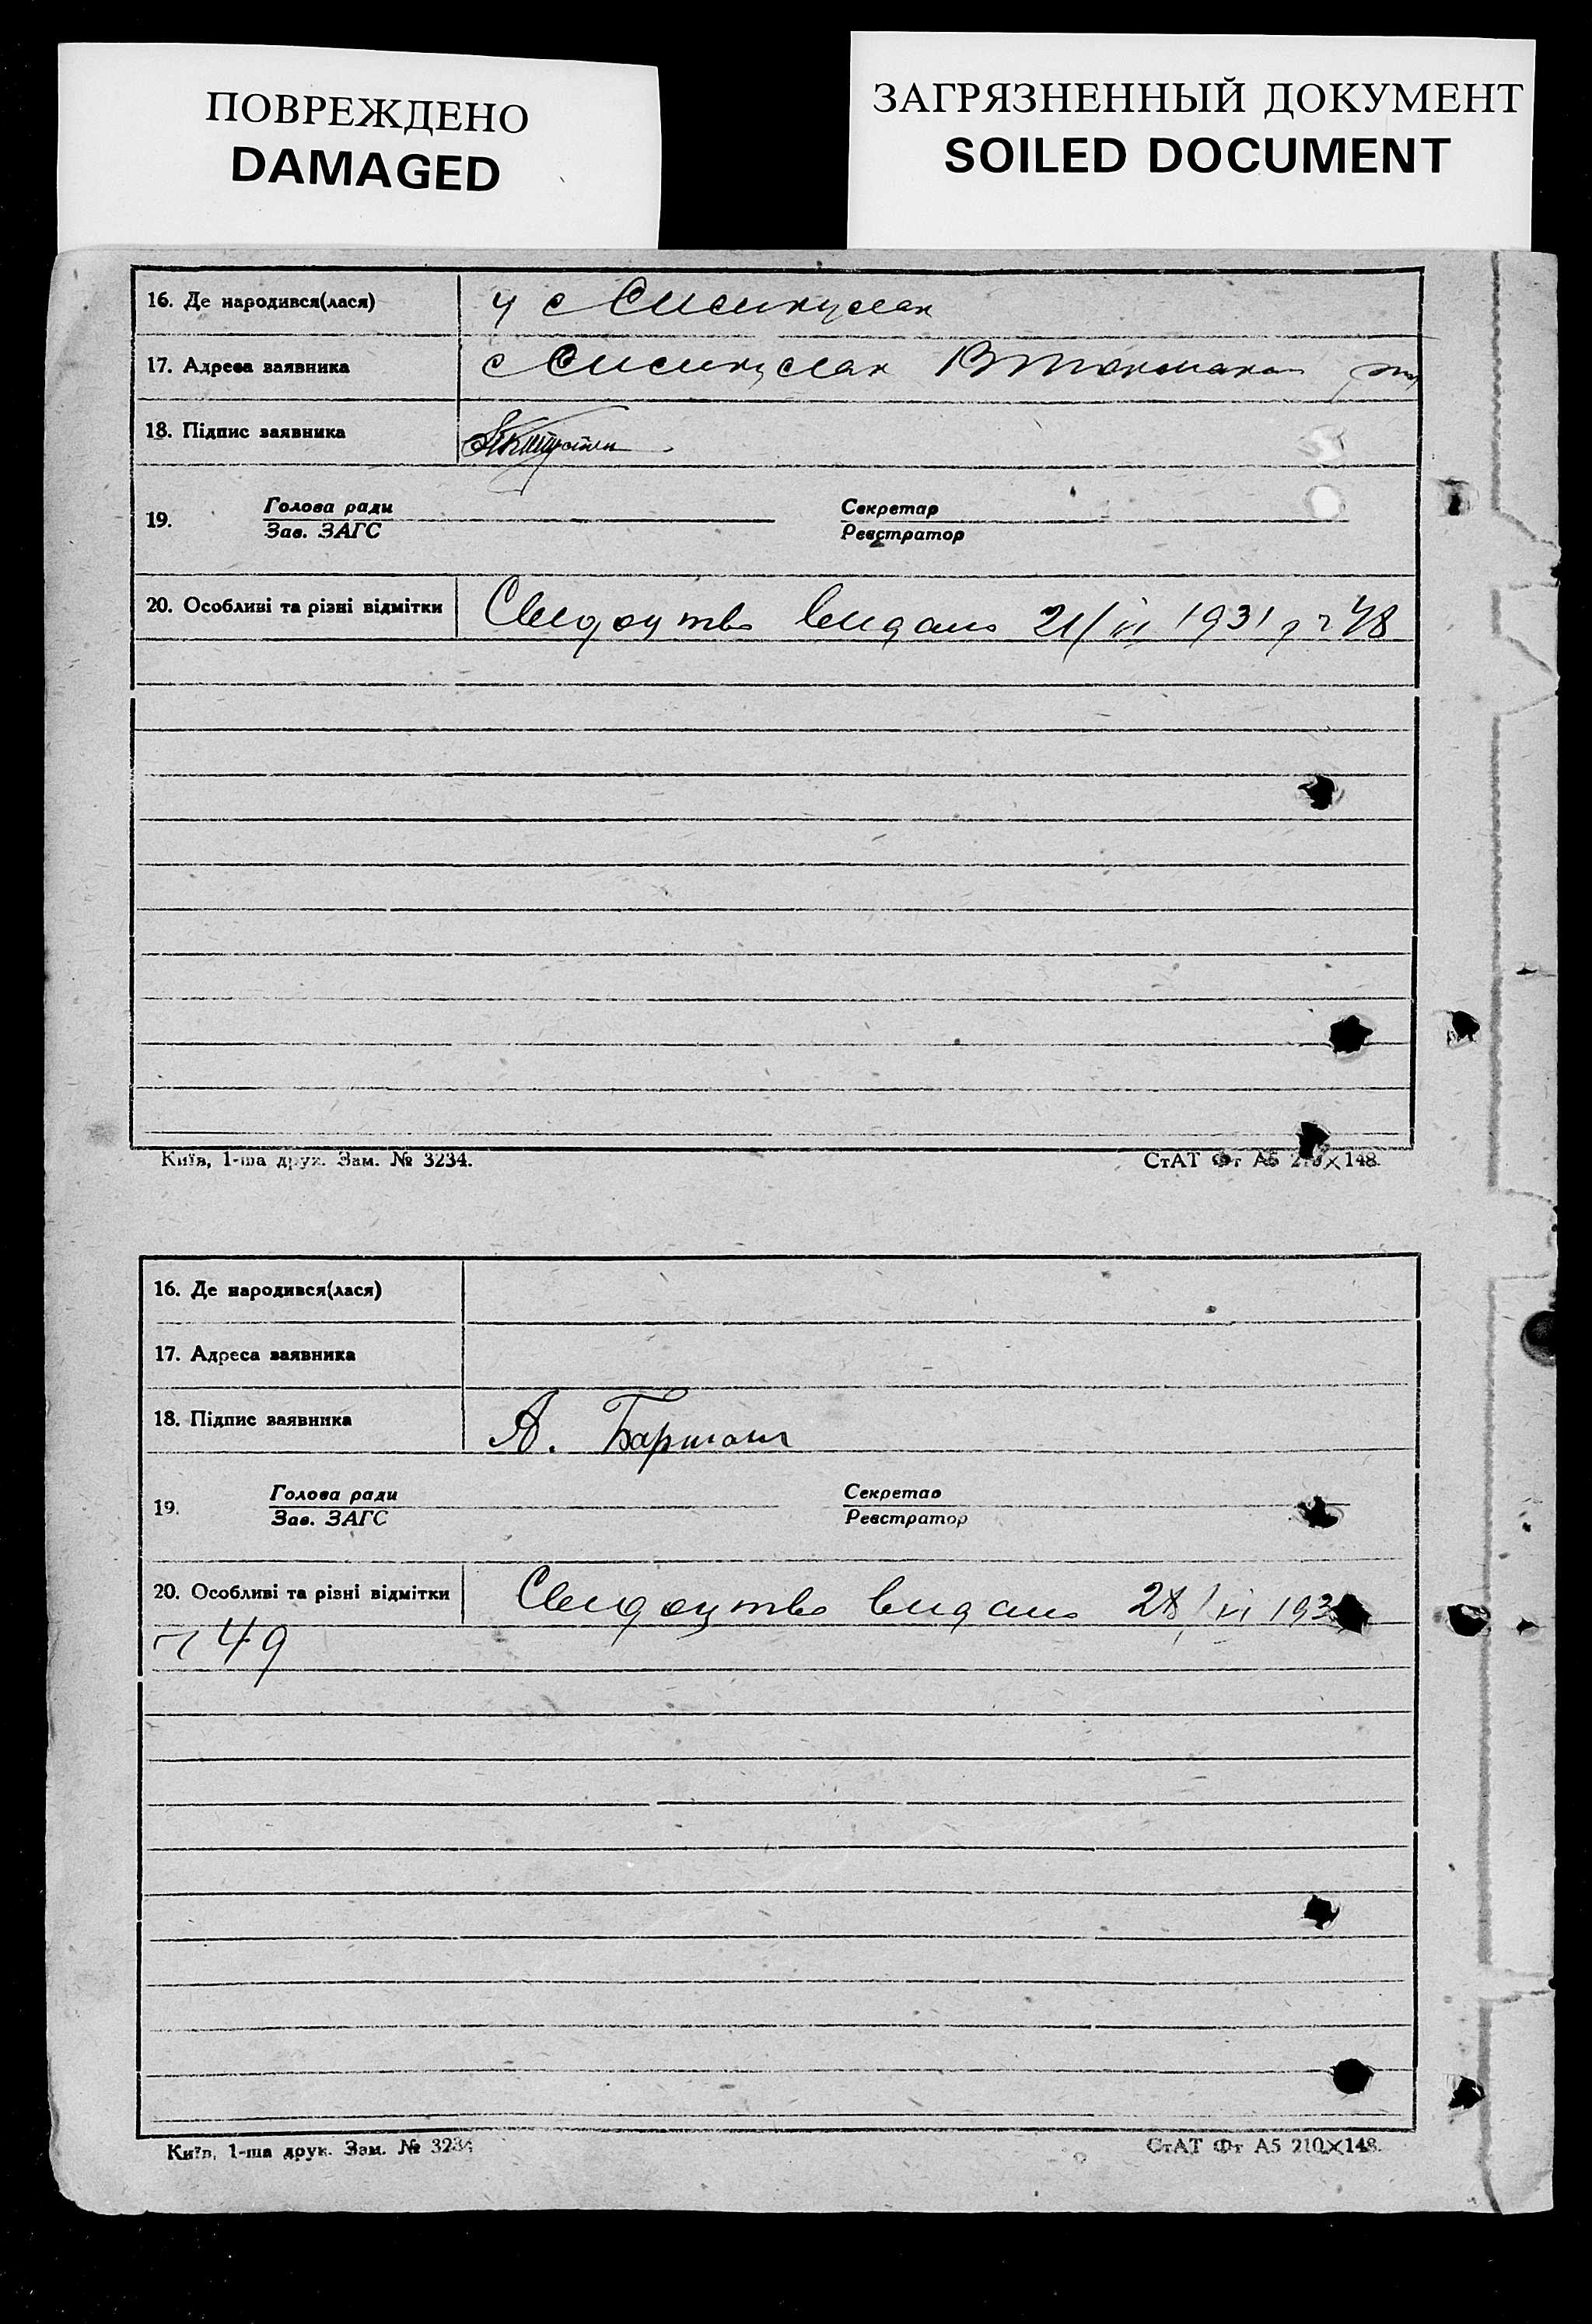 ПОВРЕЖДЕНО
DAMAGED
ЗАГРЯЗНЕННЫЙ ДОКУМЕНТ
SOILED DOCUMENT
16. Де народився(лася) у с
17. Адреса заявника с
18. Підпис заявника
19. Голова ради Секретар
Зав. ЗАГС Реєстратор
20. Особливі та різні відмітки Свидоцтво видано 21/VI 1931 р 48
Київ, 1-ша друк. Зам. № 3234. СтАТ Фт А5 210×148.
16. Де народився(лася)
17. Адреса заявника
18. Підпис заявника А.
19. Голова ради Секретар
Зав. ЗАГС Реєстратор
20. Особливі та різні відмітки Свидоцтво видано 28/VI 193
49
Київ, 1-ша друк. Зам. № 3234 СтАТ Фт А5 210×148.